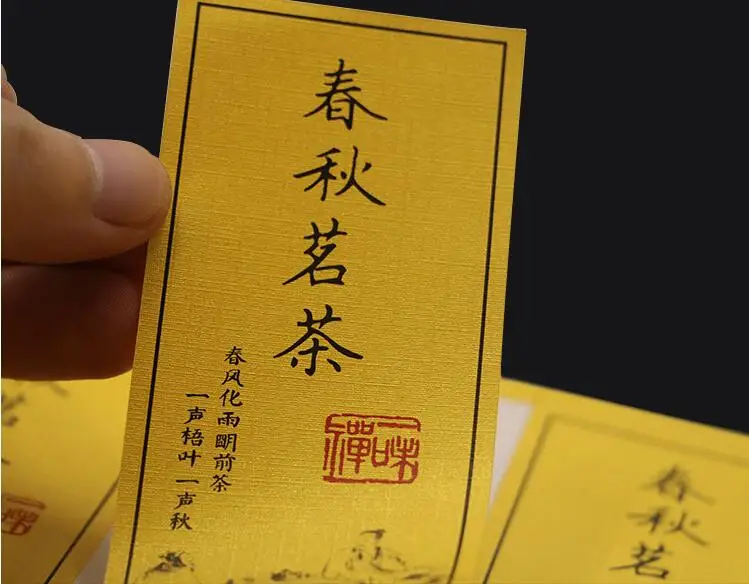 春秋茗茶
春风化雨明前茶
一声梧叶一声秋
一味禪
春秋茗